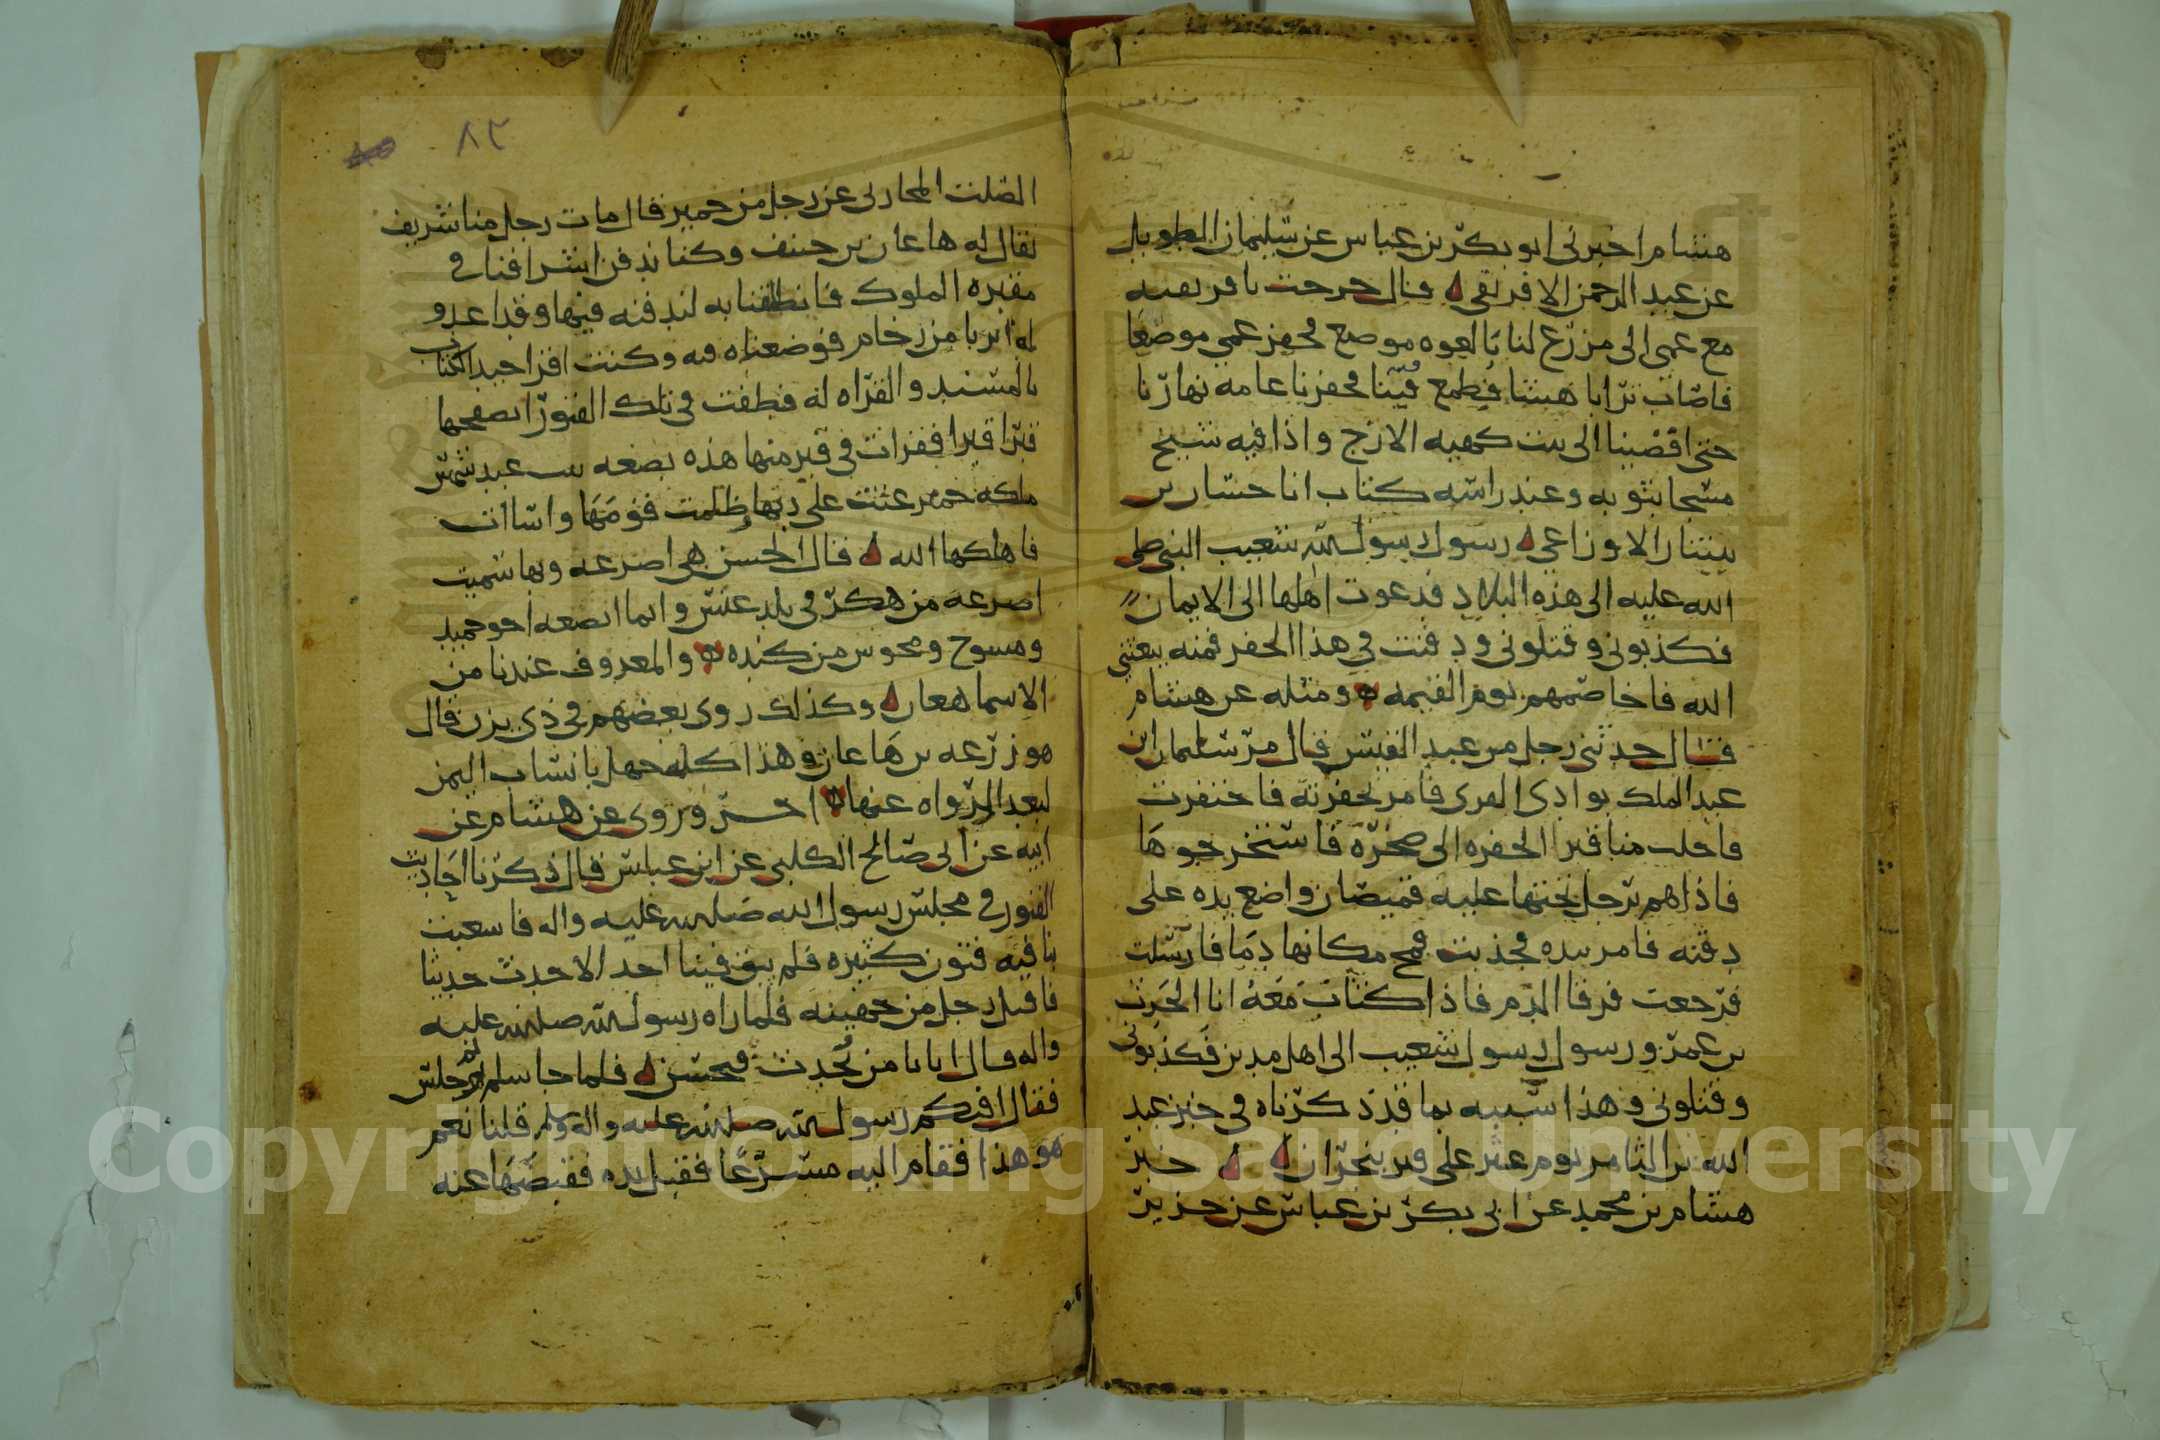 هشام اخبرني ابو بكر بن عياس عن سليمان الطويل
عن عبد الرحمن الافريقي قال خرجت بافريقيه
مع عمي الى مزرع لنا بالعوه موضع فحفر عمي موضعا
فاصاب ترابا هشا فطمع فينا فحفرنا عامه نهارنا
حتى افضينا الى بيت كهيه الازج واذا فيه شيخ
مسجا بثوبه وعند راسه كتاب انا حسان بن
سنان الاوزاعي رسول رسول الله شعيب النبي صلى
الله عليه الى هذه البلاد فدعوت اهلها الى الايمان
فكذبوني وقتلوني ودفنت في هذا الحفر فمنه يبعثني
الله فاخاصمهم يوم القيمه ومثله عن هشام
قال حدثني رجل من عبد القيس قال مر سليمان ابن
عبد الملك بوادي القرى فامر بحفرته فاحتفرت
منا الحفره الى صخره فاستخرجوها
فاذا هم برجل تحتها عليه قميصان واضع يده على
ذقنه فامر بيده فجذبت فمج مكانها دما فارسلت
فرجعت فرقا الدم فاذا كتاب معه انا الحرث
بن عمرو رسول رسول شعيب الى اهل مدين فكذبوني
وقتلوني وهذا شبيه بما قد ذكرناه في خبر عبد
الله بن الثامر يوم عثر على قبر بنجران خبر
هشام بن محمد عن ابي بكر بن عياس عن
٨٢
الصلت عن رجل من حمير قال مات رجل منا شريف
يقال له هاعان بن وكنا ندفن اشرافنا في
مقبره الملوك فانطلقنا به لندفنه فيها وقد اعدو
له ابربا من رخام فوضعناه فيه وكنت اقرا حيدا الكتاب
بالمسند والقراه له فطفت في تلك القبور اتصفحها
قبرا قبرا فقرات في قبر منها هذه بضعه بنت عبد شمس
ملكه حمير عتت على ربها وظلمت قومها واساات
فاهلكها الله قال الحسن هي اصرعه وبها سميت
اصرعه من هكر في بلد عنس وانما ابضعه اخو حميد
ومسوح ومخوس من كنده والمعروف عندنا من
الاسما هعان وكذلك روى بعضهم في ذي يزن قال
هو زرعه بن هاعان وهذا كله جهل بانساب اليمن
لبعد الرواه عنها اخر وروى عن هشام عن
ابيه عن ابي صالح الكلبي عن ابن عباس قال ذكرنا احاديث
القبور في مجلس رسول الله صلى الله عليه واله فاسعبت
بنا فيه فنون كثيره فلم يبق فينا احد الا حدث حديثا
فاقبل رجل من جهينه فلما راه رسول الله صلى الله عليه
واله قال اتانا من يحدث فيحسن فلما جا سلم ثم جلس
فقال افيكم رسول الله صلى الله عليه واله وسلم قلنا نعم
هو هذا فقام اليه مسرعا فقبل يده فقبضها عنه
Copyright © King Saud University